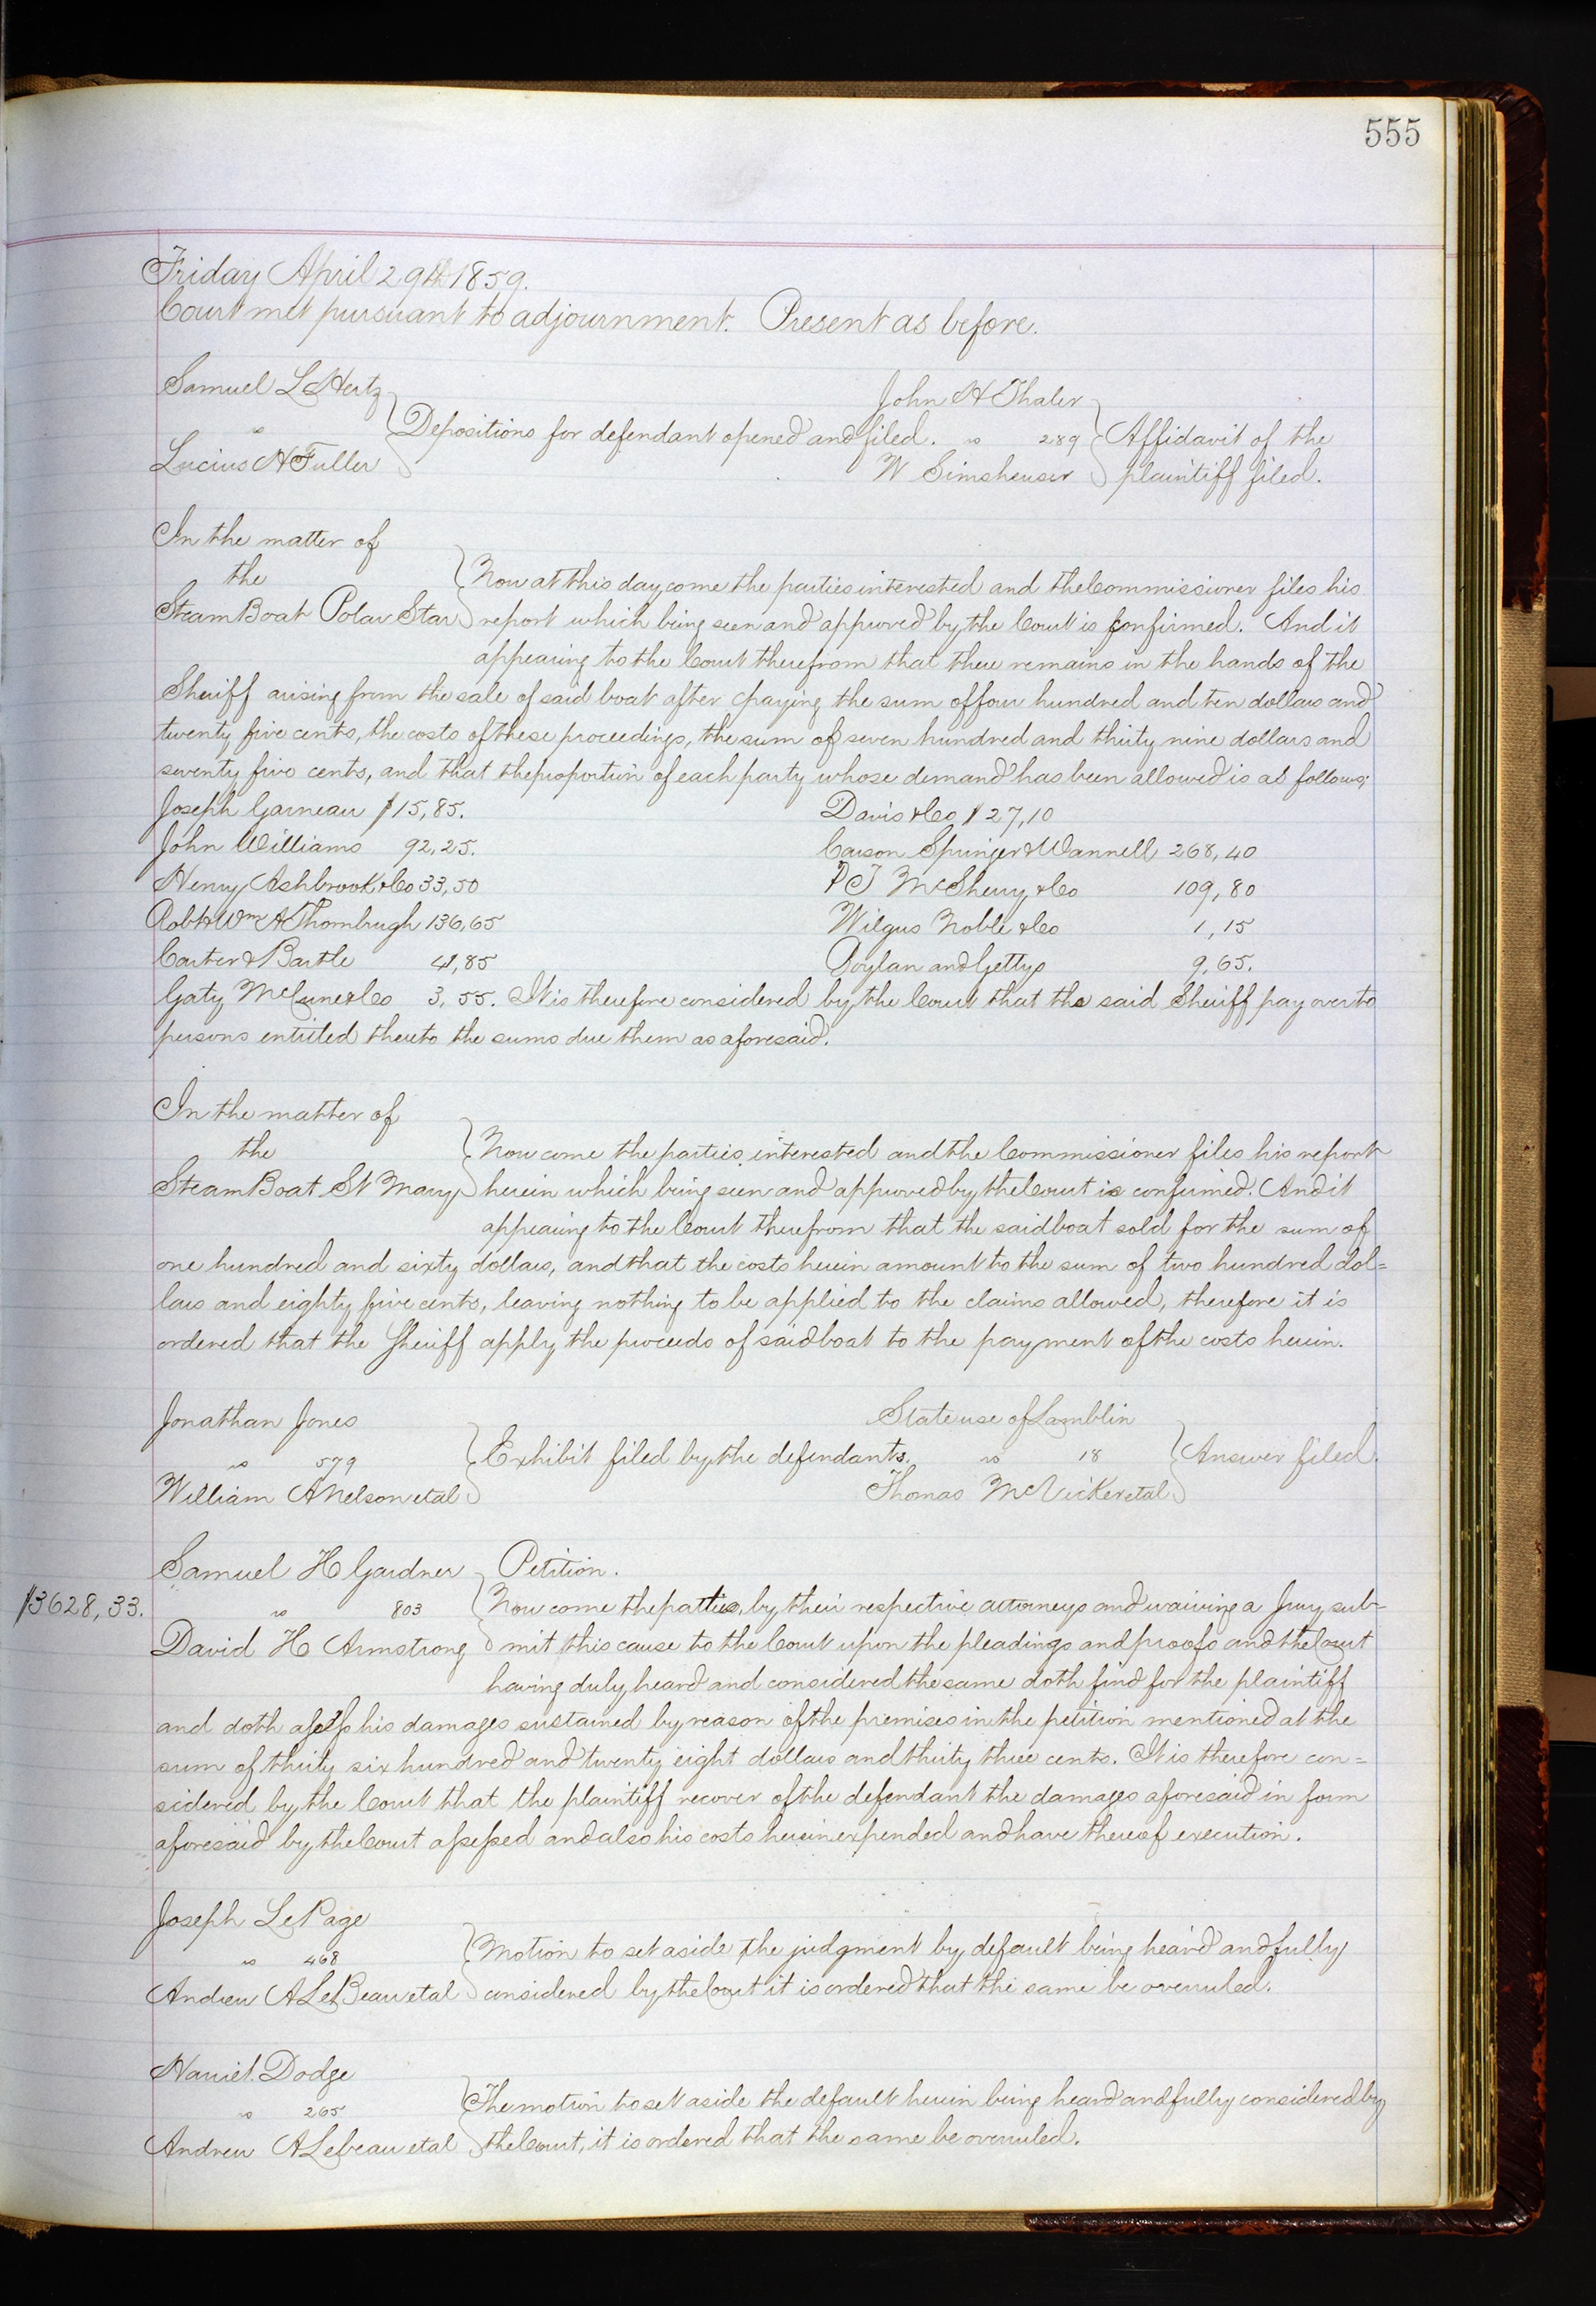 555
Friday April 29th 1859.
Court met pursuant to adjournment. Present as before.
Samuel L Hertz
vs
Lucius H Fuller
Depositions for defendant opened and filed.
John H Thaler
vs 289
W Simsheuser
Affidavit of the
plaintiff filed.
In the matter of
the
Steam Boat Polar Star
Now at this day come the parties interested and the Commissioner files his
report which being seen and approved by the Court is confirmed. And it
appearing to the Court therefrom that there remains in the hands of the
Sheriff arising from the sale of said boat after paying the sum of four hundred and ten dollars and
twenty five cents, the costs of these proceedings, the sum of seven hundred and thirty nine dollars and
seventy five cents, and that the proportion of each party whose demand has been allowed is as follows;
Joseph Garneau $15,85. Davis & Co $27,10
John Williams 92,25. Carson Springer & Wannell 268,40
Henry Ashbrook & Co 33,50 P J McSherry & Co 109,80
Robt & Wm A Thornbrugh 136,65 Wilgus Noble & Co 1,15
Carter & Bartle 41,85 Boylan and Gettys 9,65.
Gaty McCune & Co 3,55. It is therefore considered by the Court that the said Sheriff pay over to
persons entitled thereto the sums due them as aforesaid.
In the matter of
the
Steam Boat St Mary
Now come the parties interested and the Commissioner files his report
herein which being seen and approved by the Court is confirmed. And it
appearing to the Court therefrom that the said boat sold for the sum of
one hundred and sixty dollars, and that the costs herein amount to the sum of two hundred dol=
lars and eighty five cents, leaving nothing to be applied to the claims allowed, therefore it is
ordered that the Sheriff apply the proceeds of said boat to the payment of the costs herein.
Jonathan Jones
vs 579
William A Nelson etal
Exhibit filed by the defendants.
State use of Lamblin
vs 18
Thomas McVicker etal
Answer filed.
Samuel H Gardner
$3628,33. vs 803
David H Armstrong
Petition.
Now come the parties, by their respective attorneys and waiving a Jury sub=
mit this cause to the Court upon the pleadings and proofs and the Court
having duly heard and considered the same doth find for the plaintiff
and doth assess his damages sustained by reason of the premises in the petition mentioned at the
sum of thirty six hundred and twenty eight dollars and thirty three cents. It is therefore con=
sidered by the Court that the plaintiff recover of the defendant the damages aforesaid in form
aforesaid by the Court assessed and also his costs herein expended and have thereof execution.
Joseph LePage
vs 468
Andrew A LeBeau etal
Motion to set aside the judgment by default being heard and fully
considered by the Court it is ordered that the same be overruled.
Harriet Dodge
vs 265
Andrew A Lebeau etal
The motion to set aside the default herein being heard and fully considered by
the Court, it is ordered that the same be overruled.